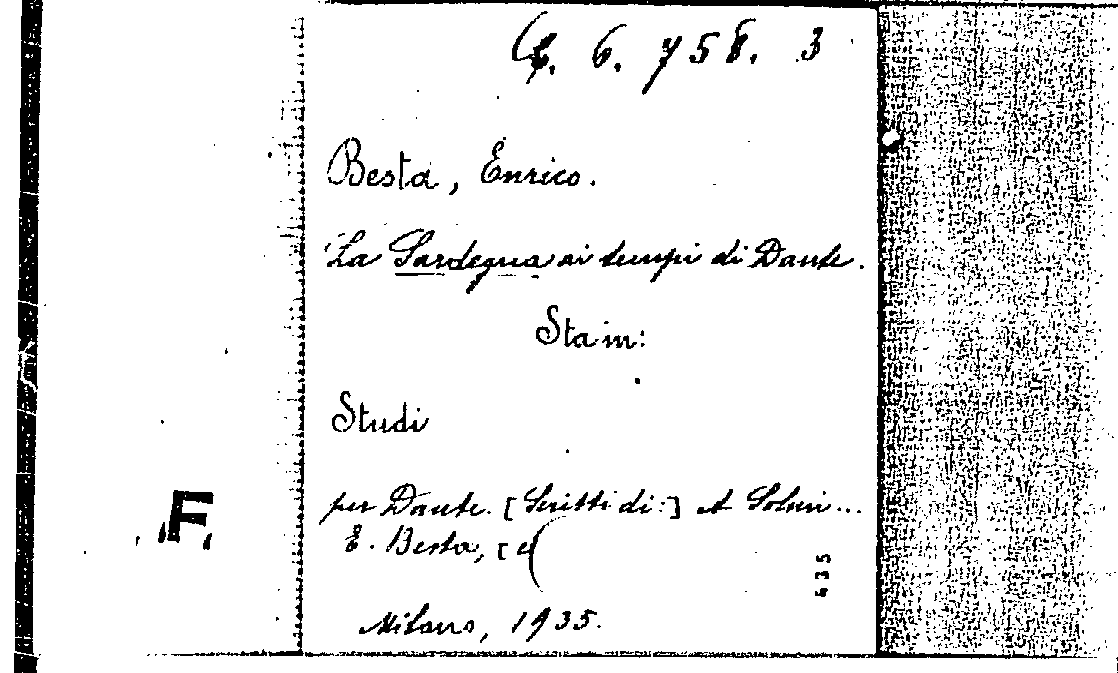 6. 758. 3
Besta, Enrico.
La Sardegna ai tempi di Dante.
Sta in:
Studi
per Dante. [Scritti di:] A Solmi...
E. Besta, [e
Milano, 1935.
F
635